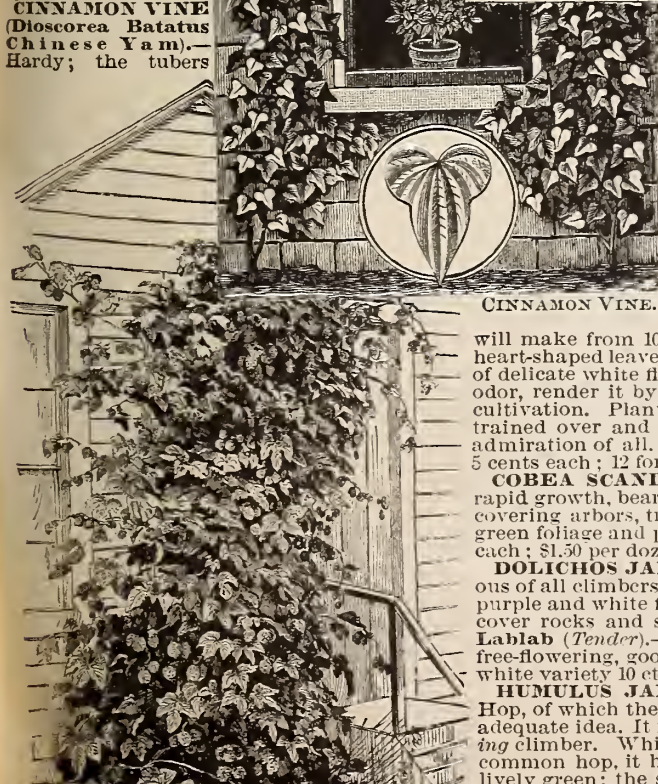 CINNAMON VINE
(Dioscorea Batatus
Chinese Yam).—
Hardy; the tubers
CINNAMON VINE.
will make from 10
heart-shaped leave
of delicate white fl
odor, render it by
cultivation. Plan
trained over and
admiration of all.
5 cents each; 12 for
COBEA SCAND
rapid growth, bear
covering arbors, tr
green foliage and p
each; $1.50 per doz
DOLICHOS JA
ous of all climbers
purple and white f
cover rocks and s
Lablab (Tender).—
free-flowering, goo
white variety 10 ct
HUMULUS JA
Hop, of which the
adequate idea. It
ing climber. Whi
common hop, it h
lively green; the